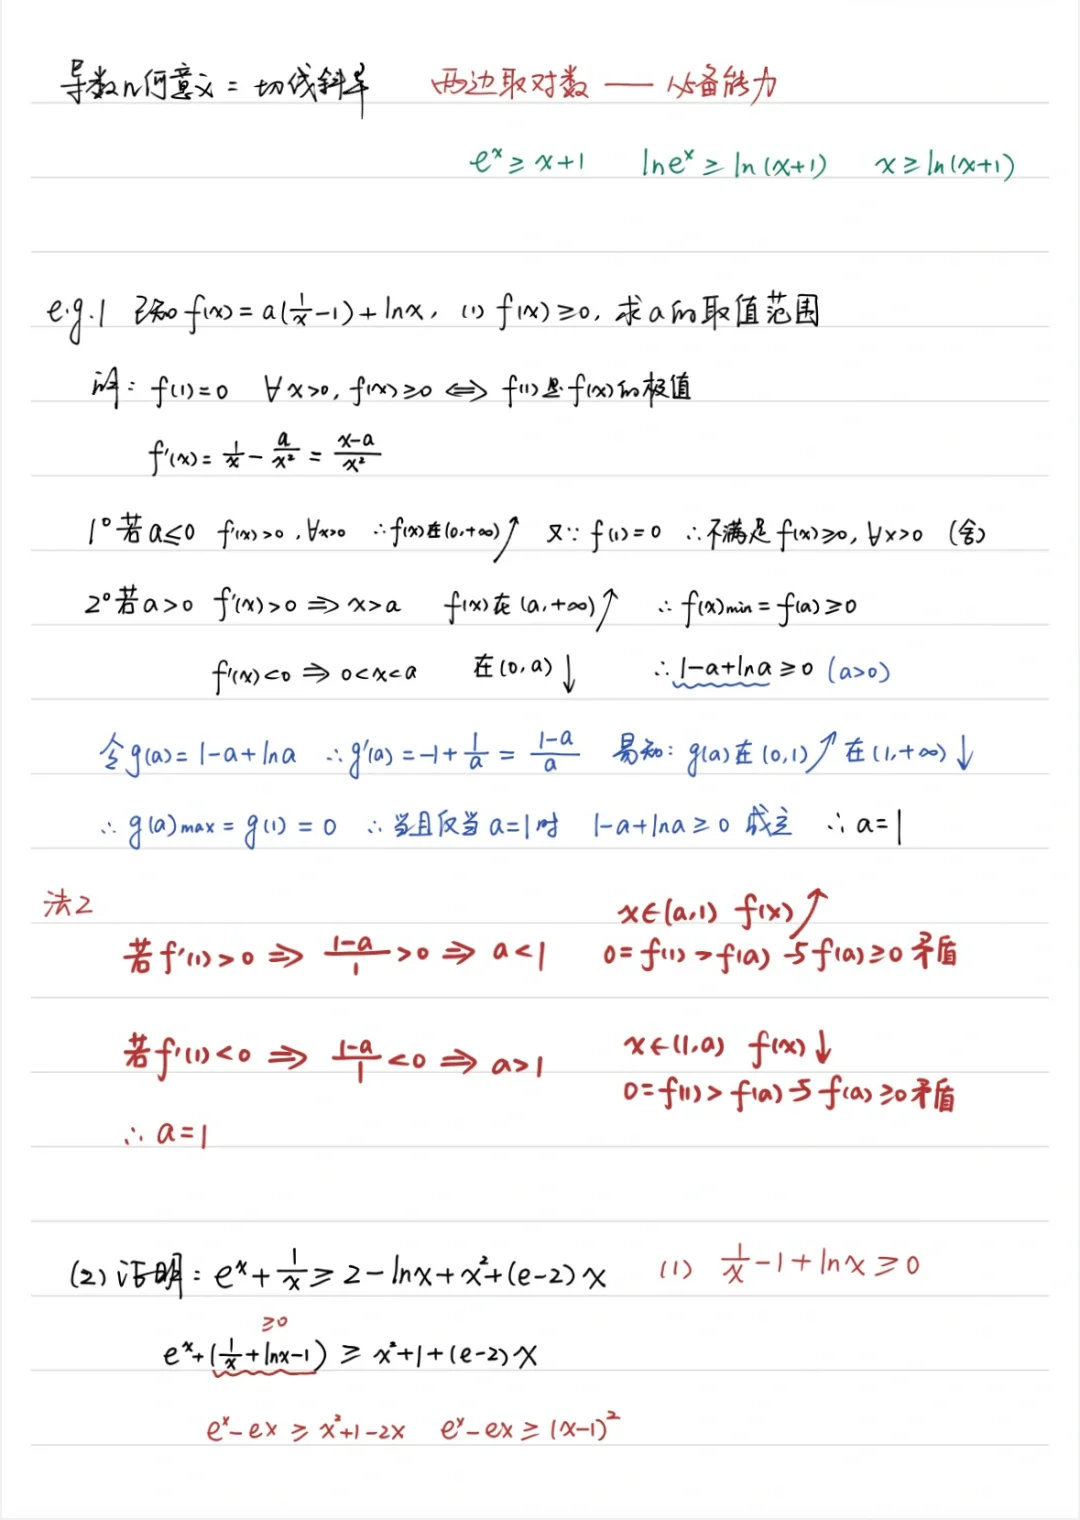 导数几何意义=切线斜率 两边取对数——必备能力
eˣ≥x+1 lneˣ≥ln(x+1) x≥ln(x+1)
e.g.1 已知f(x)=a(1/x-1)+lnx, (1) f(x)≥0, 求a的取值范围
解: f(1)=0 ∀x>0, f(x)≥0 ⟺ f(1)是f(x)的极值
f'(x)=1/x-a/x²=(x-a)/x²
1° 若a≤0 f'(x)>0, ∀x>0 ∴f(x)在(0,+∞)↗ 又∵f(1)=0 ∴不满足f(x)≥0, ∀x>0 (舍)
2° 若a>0 f'(x)>0⇒x>a f(x)在(a,+∞)↗ ∴f(x)min=f(a)≥0
f'(x)<0⇒0<x<a 在(0,a)↓ ∴1-a+lna≥0 (a>0)
令g(a)=1-a+lna ∴g'(a)=-1+1/a=(1-a)/a 易知: g(a)在(0,1)↗在(1,+∞)↓
∴g(a)max=g(1)=0 ∴当且仅当a=1时 1-a+lna≥0 成立 ∴a=1
法2
x∈(a,1) f(x)↗
若f'(1)>0⇒(1-a)/1>0⇒a<1 0=f(1)>f(a)与f(a)≥0矛盾
x∈(1,a) f(x)↓
若f'(1)<0⇒(1-a)/1<0⇒a>1 0=f(1)>f(a)与f(a)≥0矛盾
∴a=1
(2)证明: eˣ+1/x≥2-lnx+x²+(e-2)x (1) 1/x-1+lnx≥0
≥0
eˣ+(1/x+lnx-1)≥x²+1+(e-2)x
eˣ-ex≥x²+1-2x eˣ-ex≥(x-1)²